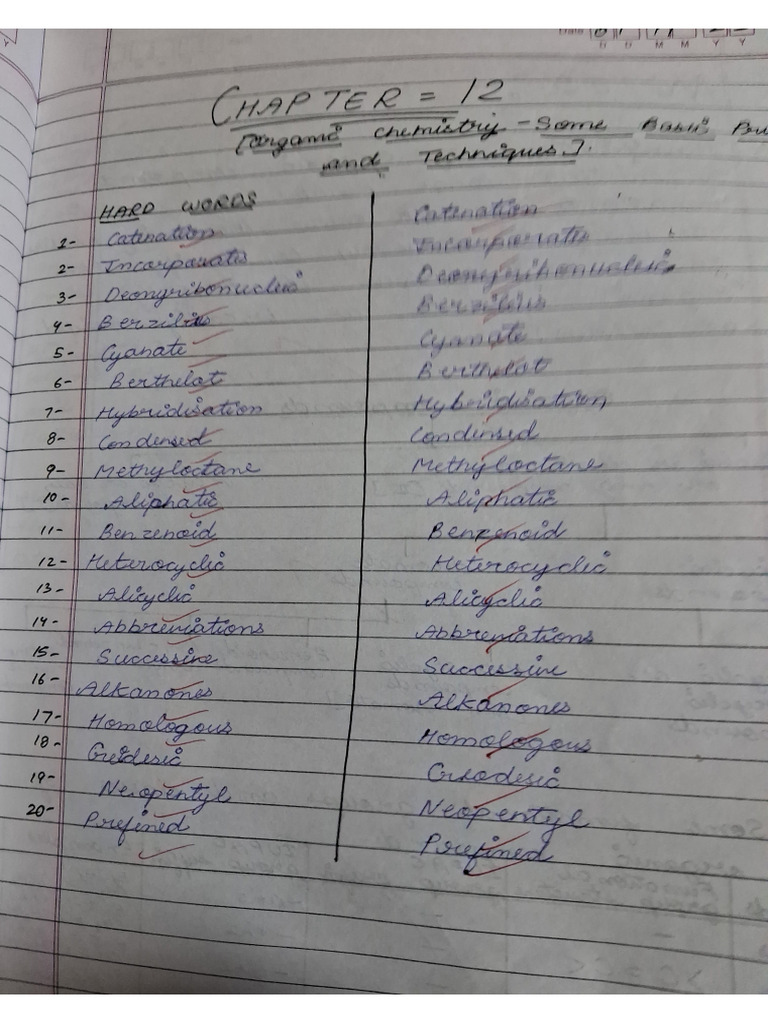 CHAPTER = 12
[Organic Chemistry - Some Basic
and Techniques].
HARD WORDS
1- Catenation Catenation
2- Incorporates Incorporates
3- Deoxyribonucleic Deoxyribonucleic
4- Berzilius Berzilius
5- Cyanate Cyanate
6- Berthelot Berthelot
7- Hybridisation Hybridisation
8- Condensed Condensed
9- Methyloctane Methyloctane
10- Aliphatic Aliphatic
11- Benzenoid Benzenoid
12- Heterocyclic Heterocyclic
13- Alicyclic Alicyclic
14- Abbreviations Abbreviations
15- Successive Successive
16- Alkanones Alkanones
17- Homologous Homologous
18-
19- Neopentyl Neopentyl
20- Prefined Prefined